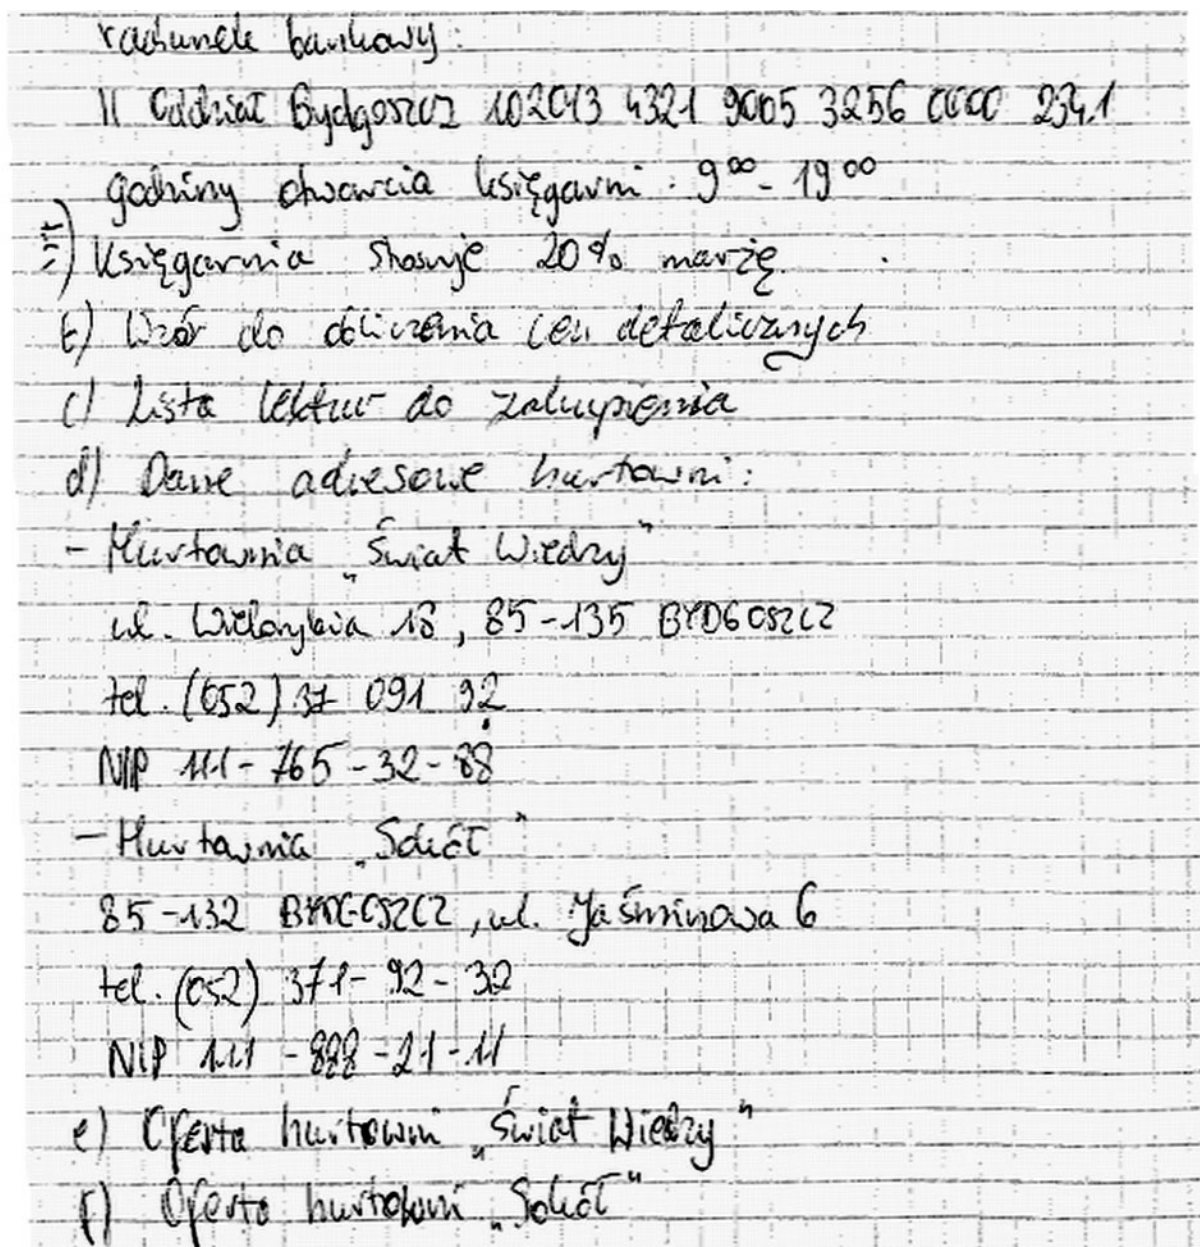 rachunek bankowy:
II Oddział Bydgoszcz 102043 4321 9005 3256 0000 2341
godziny otwarcia księgarni: 9⁰⁰ - 19⁰⁰
Księgarnia stosuje 20% marżę.
b) Wzór do obliczenia cen detalicznych
c) Lista lektur do zakupienia
d) Dane adresowe hurtowni:
- Hurtownia „Świat Wiedzy”
ul. Wielorybia 18, 85-135 BYDGOSZCZ
tel. (052) 37 091 92
NIP 111-765-32-88
- Hurtownia „Sokół”
85-132 BYDGOSZCZ, ul. Jaśminowa 6
tel. (052) 371-92-32
NIP 111-888-21-11
e) Oferta hurtowni „Świat Wiedzy”
f) Oferta hurtowni „Sokół”